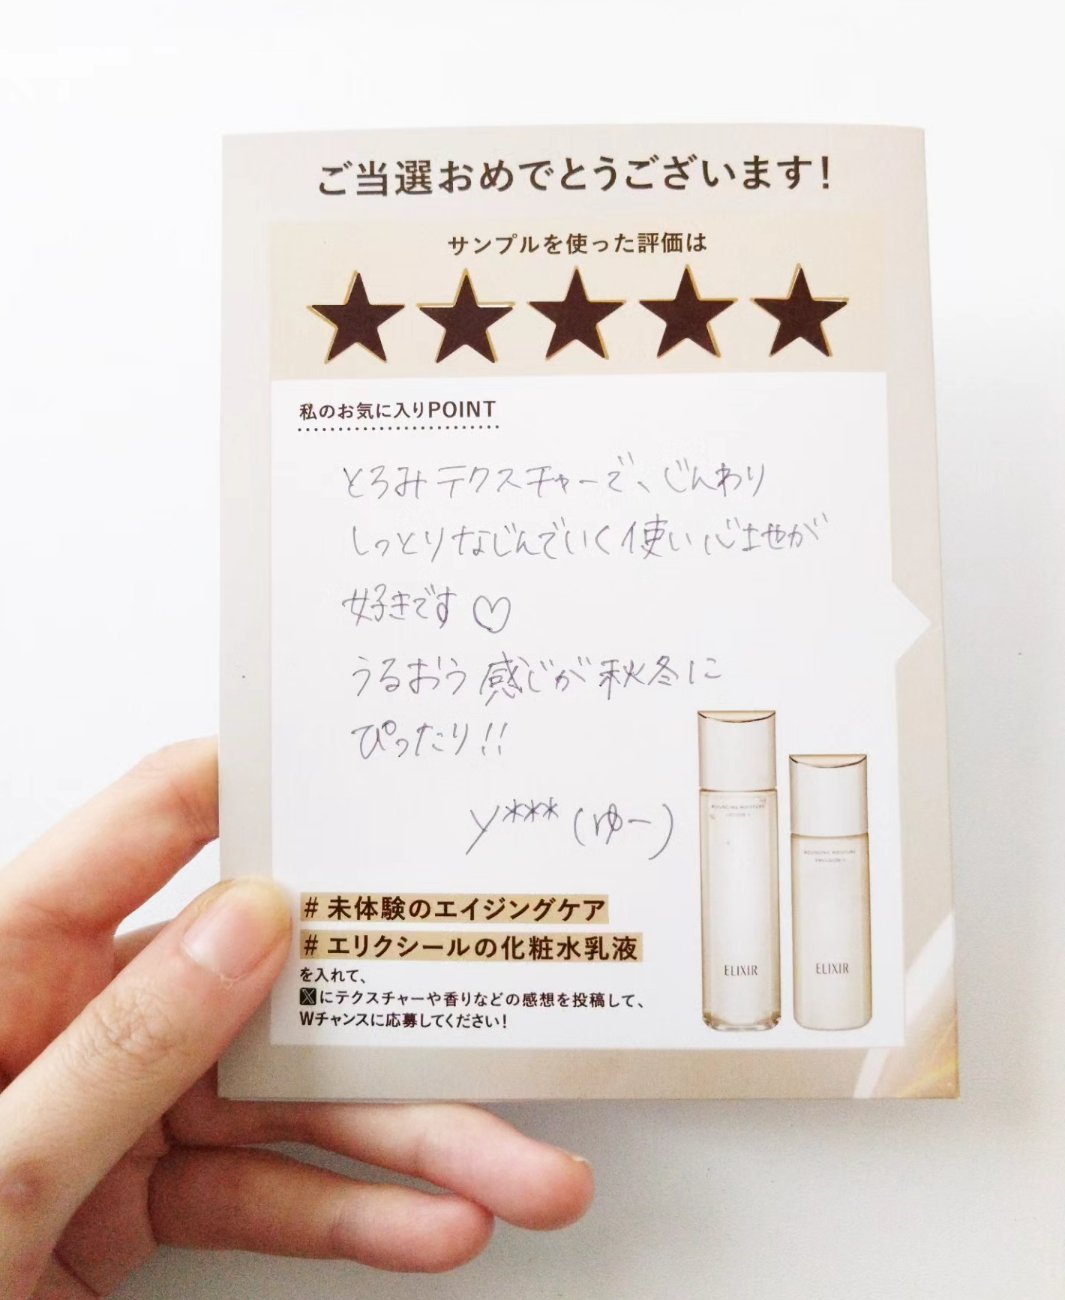 ご当選おめでとうございます!
サンプルを使った評価は
★★★★★
私のお気に入りPOINT
とろみテクスチャーで、じんわり
しっとりなじんでいく使い心地が
好きです♡
うるおう感じが秋冬に
ぴったり!!
y***(ゆー)
BOUNCING MOISTURE
LOTION
BOUNCING MOISTURE
EMULSION
ELIXIR
ELIXIR
# 未体験のエイジングケア
# エリクシールの化粧水乳液
を入れて、
Xにテクスチャーや香りなどの感想を投稿して、
Wチャンスに応募してください!